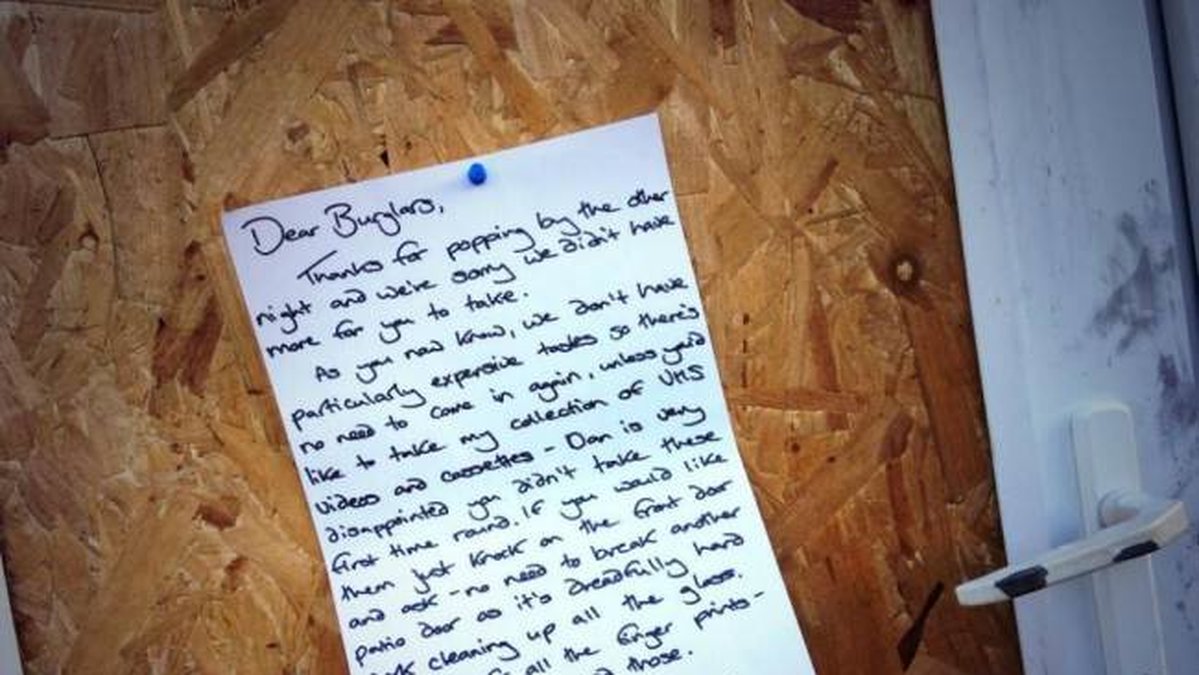 Dear Burglars,
Thanks for popping by the other
night and we're sorry we didn't have
more for you to take.
As you now know, we don't have
particularly expensive tastes so there's
no need to come in again, unless you'd
like to take my collection of VHS
videos and cassettes - Dan is very
disappointed you didn't take these
first time round. If you would like
them just knock on the front door
and ask - no need to break another
patio door as it's dreadfully hard
cleaning up all the glass.
all the finger prints -
those.